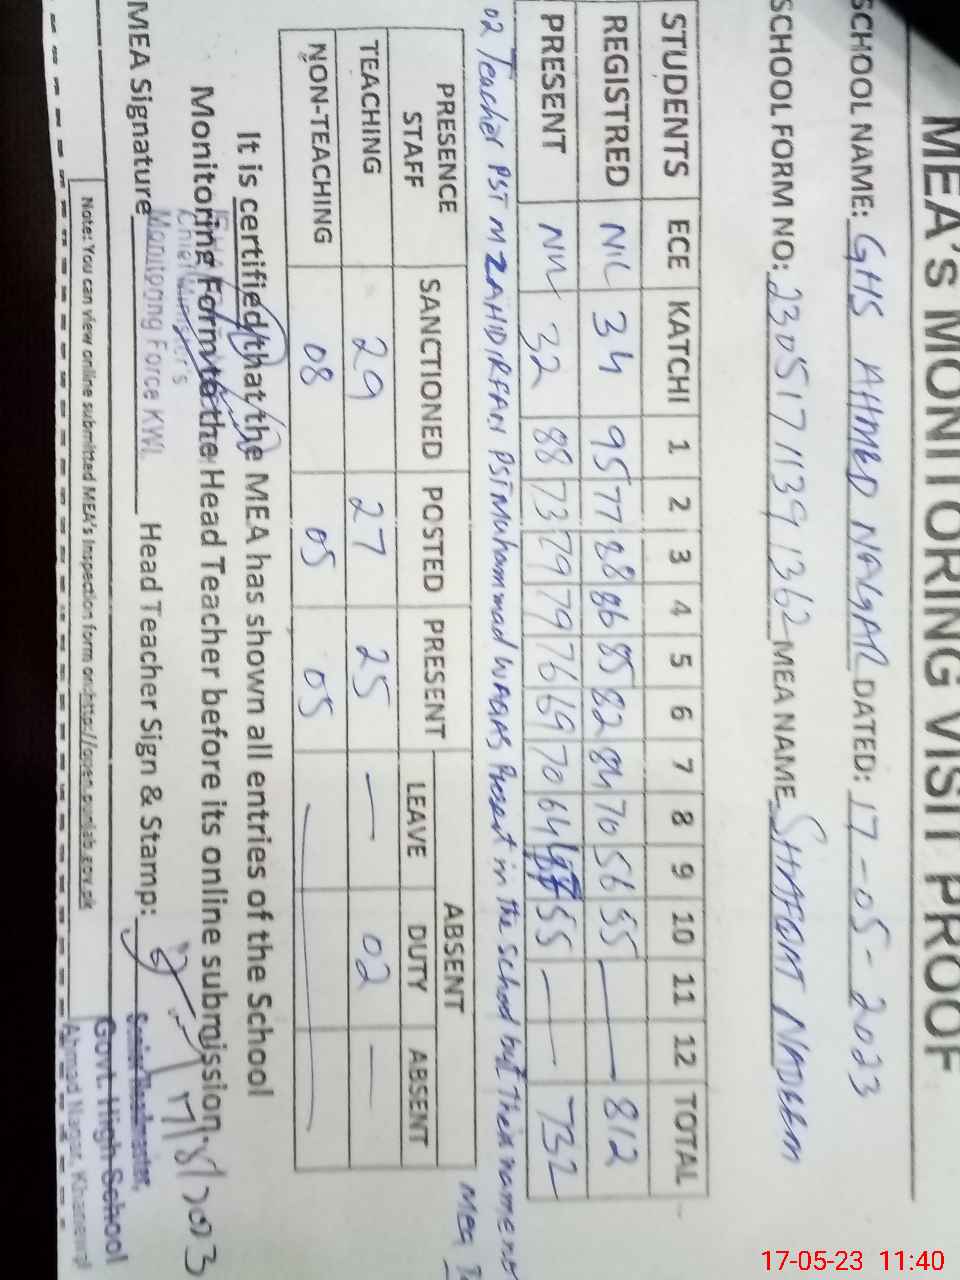 MEA's MONITORING VISIT PROOF
SCHOOL NAME: GHS AHMED NAGAR DATED: 17-05-2023
SCHOOL FORM NO: 23051711391362 MEA NAME SHAFQAT NADEEM
STUDENTS ECE KATCHI 1 2 3 4 5 6 7 8 9 10 11 12 TOTAL
REGISTRED NIL 34 95 77 88 86 85 82 84 70 56 55 — 812
PRESENT NIL 32 88 73 79 79 76 69 70 64 55 — 732
02 Teacher PST M ZAHID IRFAN PST Muhammad WAQAS Present in the school but Their name not
PRESENCE STAFF SANCTIONED POSTED PRESENT ABSENT
LEAVE DUTY ABSENT
TEACHING 29 27 25 — 02 —
NON-TEACHING 08 05 05 —
Mea
It is certified that the MEA has shown all entries of the School
Monitoring Form to the Head Teacher before its online submission.
MEA Signature Head Teacher Sign & Stamp: 17/5/2023
Chief Minister's
Monitoring Force KWL
Senior Headmaster,
Govt. High School
Ahmad Nagar, Khanewal
Note: You can view online submitted MEA's Inspection form on:http://open.punjab.gov.pk
17-05-23 11:40